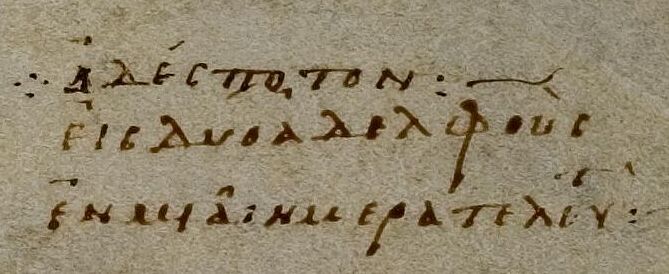 ∴ ἀδέσποτον :—
εἰς δυο ἀδελφοὺς
ἐν μιᾶι ημερα τελευτ :